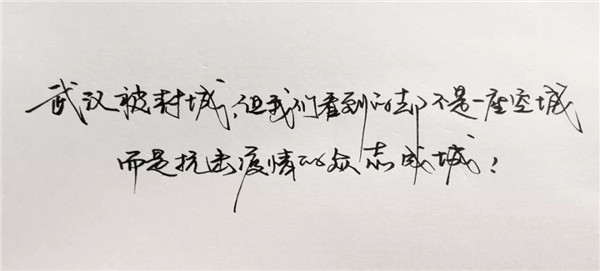 武汉被封城，但我们看到的却不是一座空城
而是抗击疫情的众志成城！